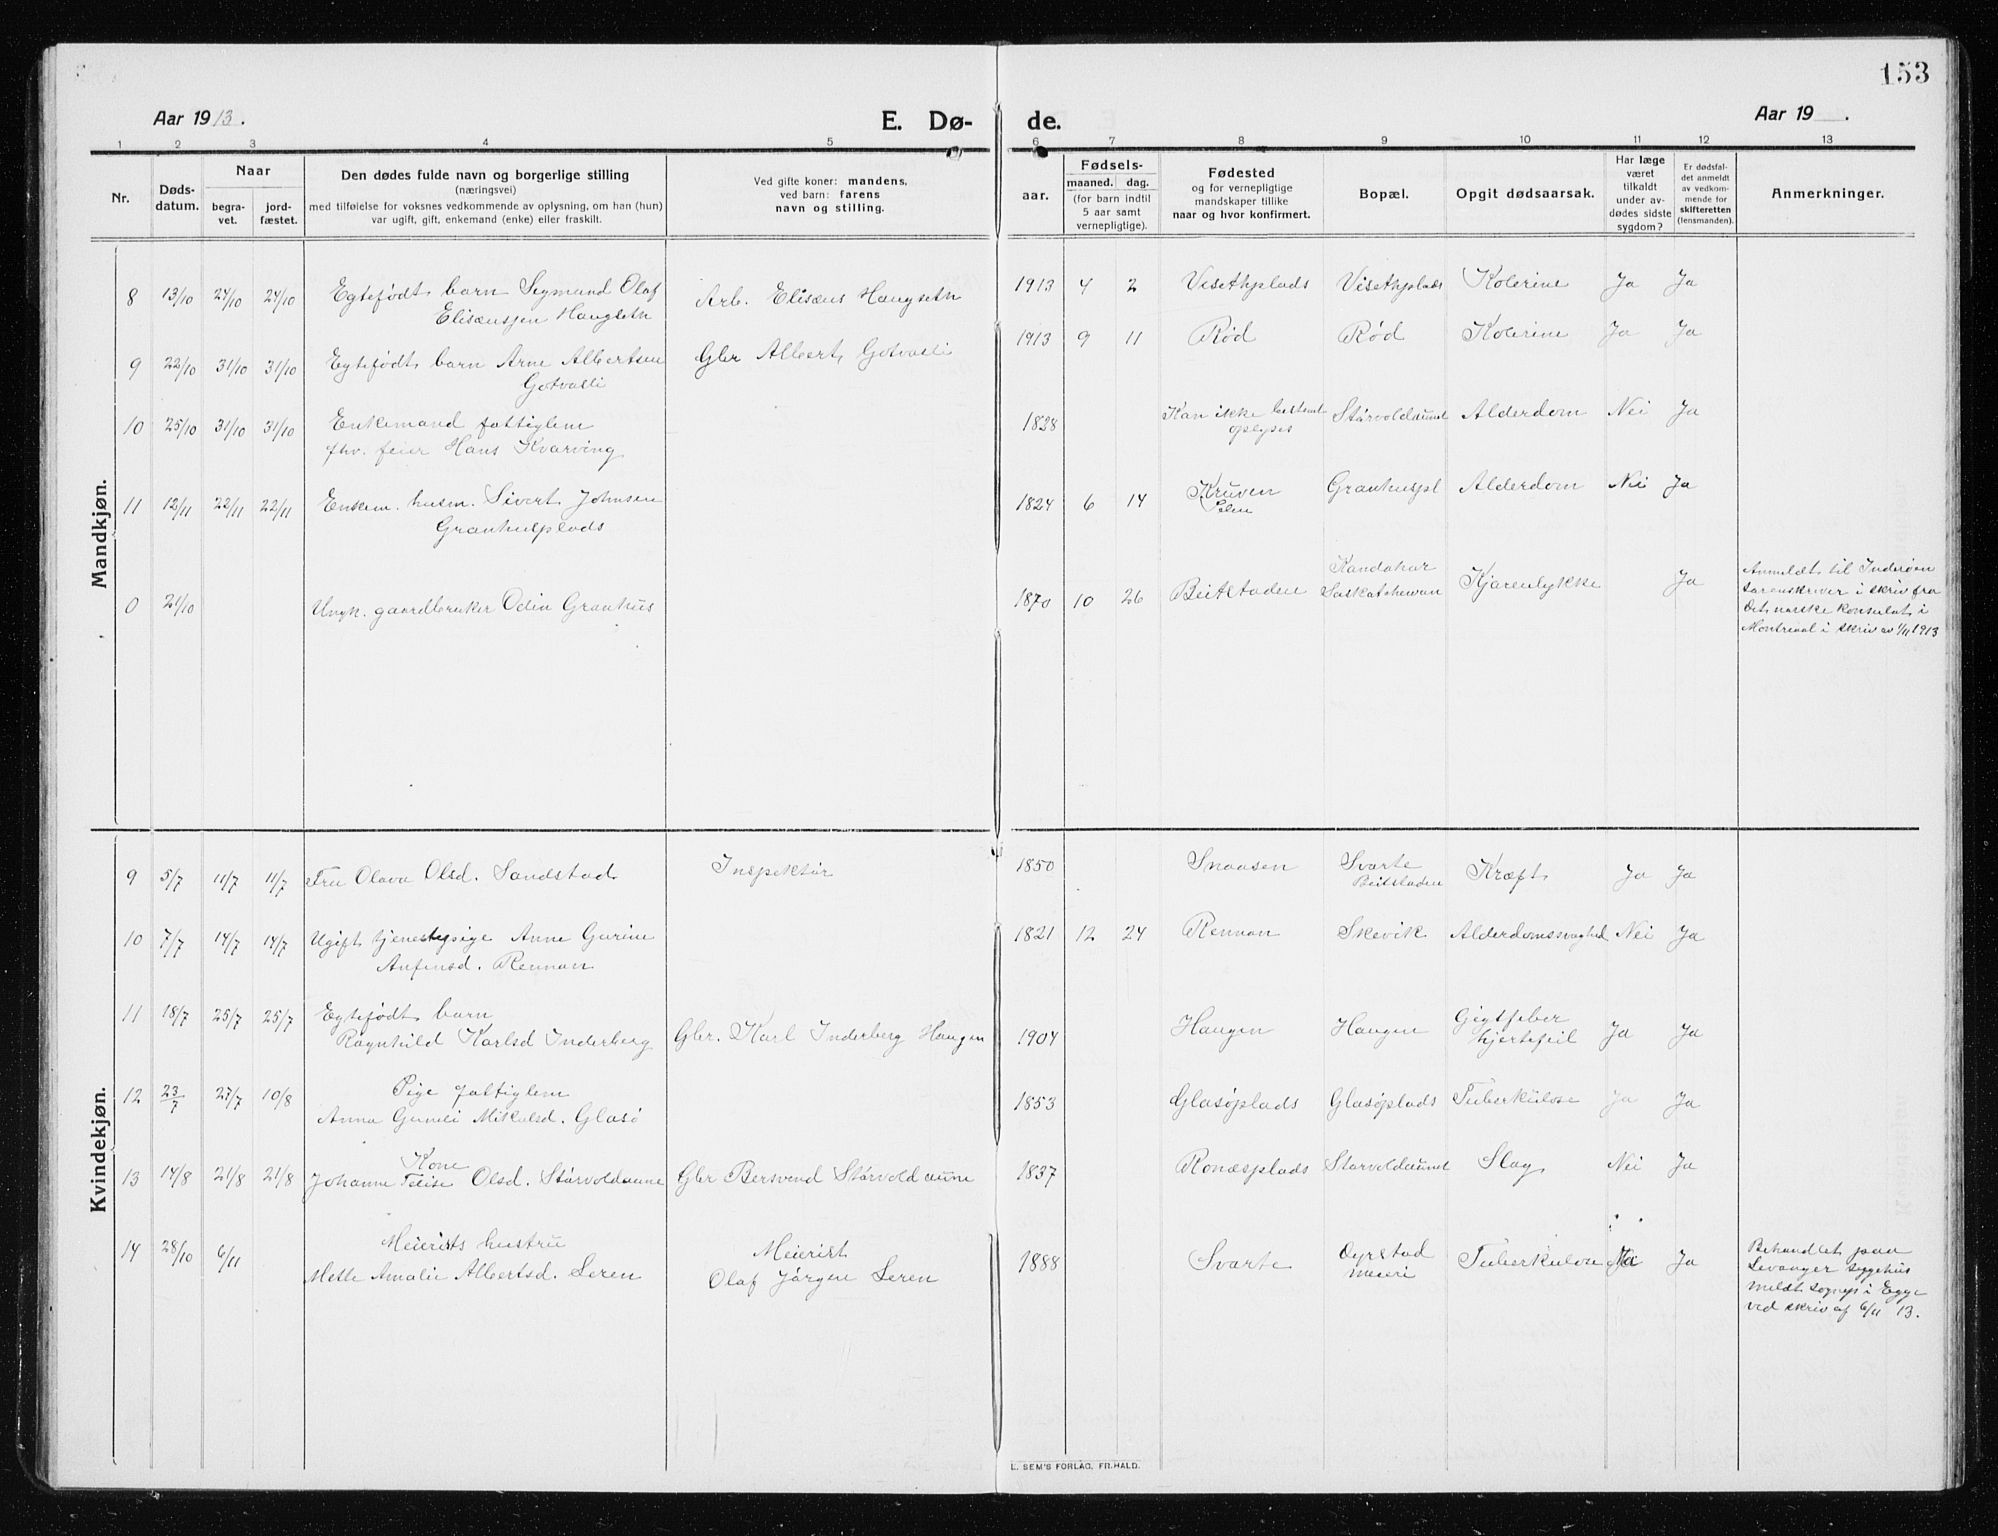 153
Aar 1913.
E. Dø-
de.
Aar 19 .
1 2 3 4 5 6 7 8 9 10 11 12 13
Nr.
Døds-
datum.
Naar
begra-
vet.
jord-
fæstet.
Den dødes fulde navn og borgerlige stilling
(næringsvei)
med tilføielse for voksnes vedkommende av oplysning, om han (hun)
var ugift, gift, enkemand (enke) eller fraskilt.
Ved gifte koner: mandens,
ved barn: farens
navn og stilling.
Fødsels-
aar.
maaned. dag.
(for barn indtil
5 aar samt
vernepligtige).
Fødested
og for vernepligtige
mandskaper tillike
naar og hvor konfirmert.
Bopæl.
Opgit dødsaarsak.
Har læge
været
tilkaldt
under av-
dødes sidste
sygdom?
Er dødsfal-
det anmeldt
av vedkom-
mende for
skifteretten
(lensmanden).
Anmerkninger.
Mandkjøn.
8 13/10 24/10 24/10 Egtefødt barn Sigmund Olaf Arb. Elisæus Haugseth 1913 4 2 Visethplads Visethplads Kolerine Ja Ja
Elisæussen Haugseth
9 22/10 31/10 31/10 Egtefødt barn Arne Albertsen Gbr Albert Gotvasli 1913 9 11 Rød Rød Kolerine Ja Ja
Gotvasli
10 25/10 31/10 31/10 Enkemand fattiglem 1828 Kan ikke bestemt Størvoldaunet Alderdom Nei Ja
fhv. feier Hans Kvarving oplyses
11 12/11 22/11 22/11 Enkem. husm. Sivert Johnsen 1824 6 14 Kruven Granhuspl Alderdom Nei Ja
Granhusplads
0 21/10 Ungk. gaardbruker Odin Granhus 1870 10 26 Beitstaden Kandahar
Saskatchewan Kjærenlykke Ja Anmeldt til Inderøen
sorenskriver i skriv fra
det norske konsulat i
Montreal i skriv av 1/11 1913
Kvindekjøn.
9 5/7 11/7 11/7 Fru Olava Olsd. Sandstad Inspektør 1850 Snaasen Svarte Kræft Ja Ja
Beitstaden
10 7/7 14/7 14/7 Ugift tjenestepige Anne Gurine 1821 12 24 Rennan Skevik Alderdomssvaghed Nei Ja
Anfinsd. Rennan
11 18/7 25/7 25/7 Egtefødt barn
Ragnhild Karlsd Inderberg Gbr. Karl Inderberg Haugen 1904 Haugen Haugen Gigtfeber
hjertefeil Ja Ja
12 23/7 27/7 10/8 Pige fattiglem
Anna Gunili Mikalsd. Glasø 1853 Glasøplads Glasøplads Tuberkulose Ja Ja
13 14/8 21/8 21/8 Kone
Johanne Olsd. Størvoldaune Gbr Bersvend Størvoldaune 1837 Ronæsplads Størvoldaunet Slag Nei Ja
14 28/10 6/11 Meierists hustru Meierist
Mette Amalie Albertsd. Leren Olaf Jørgen Leren 1888 Svarte Oyrstad
meieri Tuberkulose Ja Behandlet paa
Levanger sygehus
meldt sognep i Egge
ved skriv af 6/11 13.
L. SEM'S FORLAG, FR.HALD.